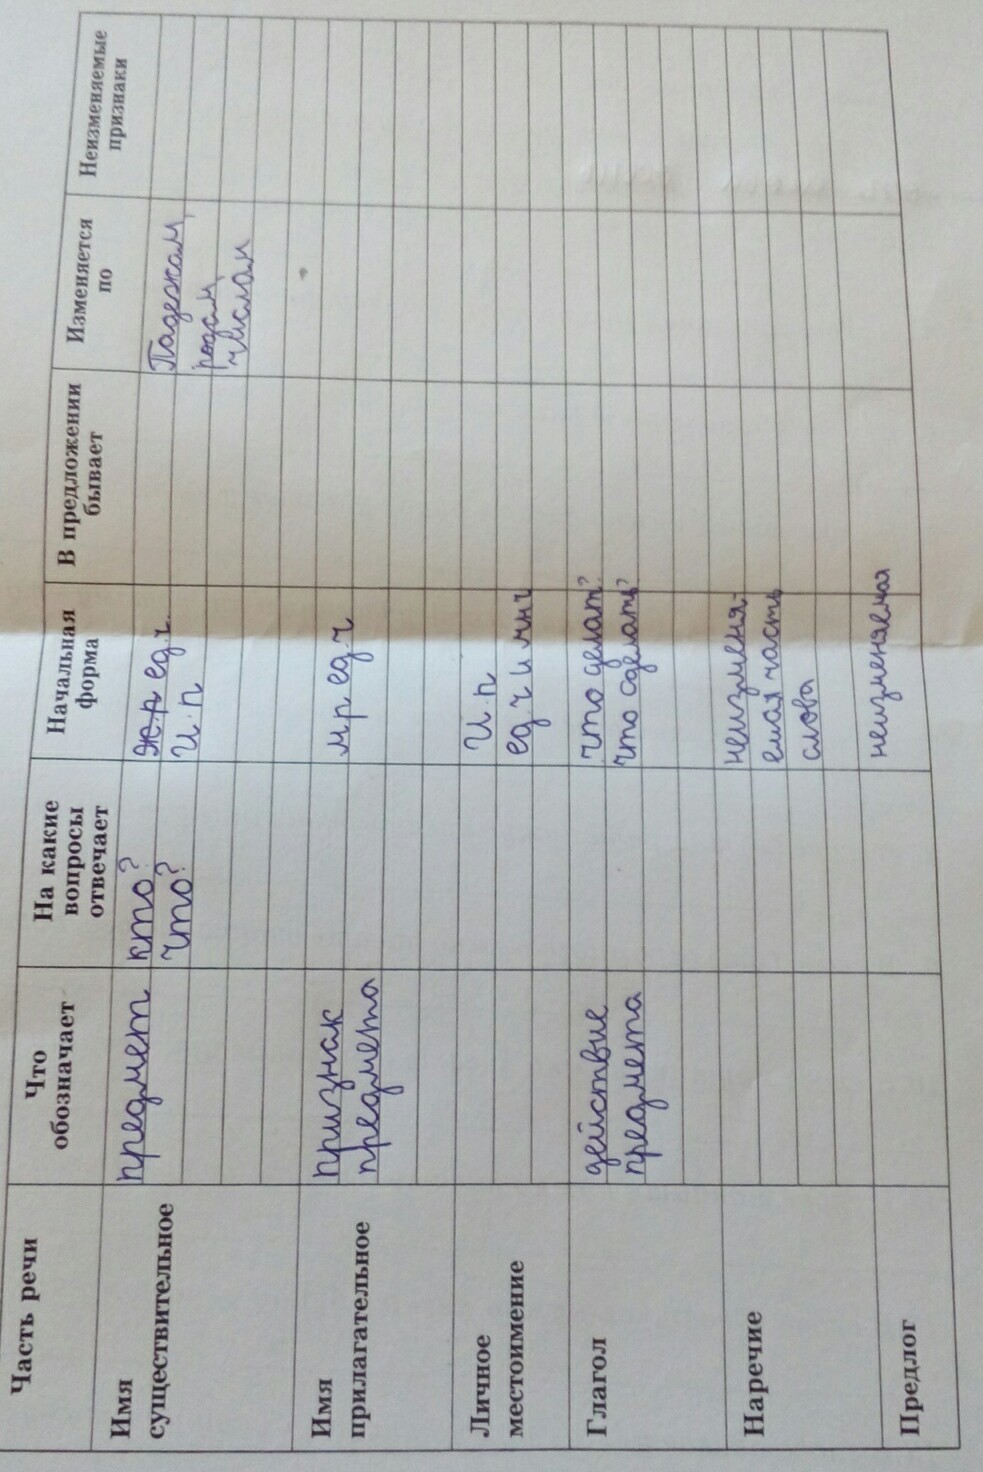 Часть речи
Что
обозначает
На какие
вопросы
отвечает
Начальная
форма
В предложении
бывает
Изменяется
по
Неизменяемые
признаки
Имя
существительное
предмет
кто?
что?
ж.р ед.ч.
И.п
Падежам,
родам,
числам
Имя
прилагательное
признак
предмета
м.р ед.ч
Личное
местоимение
И.п
ед.ч и мн.ч
Глагол
действие
предмета
что делат?
что сделать?
Наречие
неизменя-
емая часть
слова
Предлог
неизменяемая